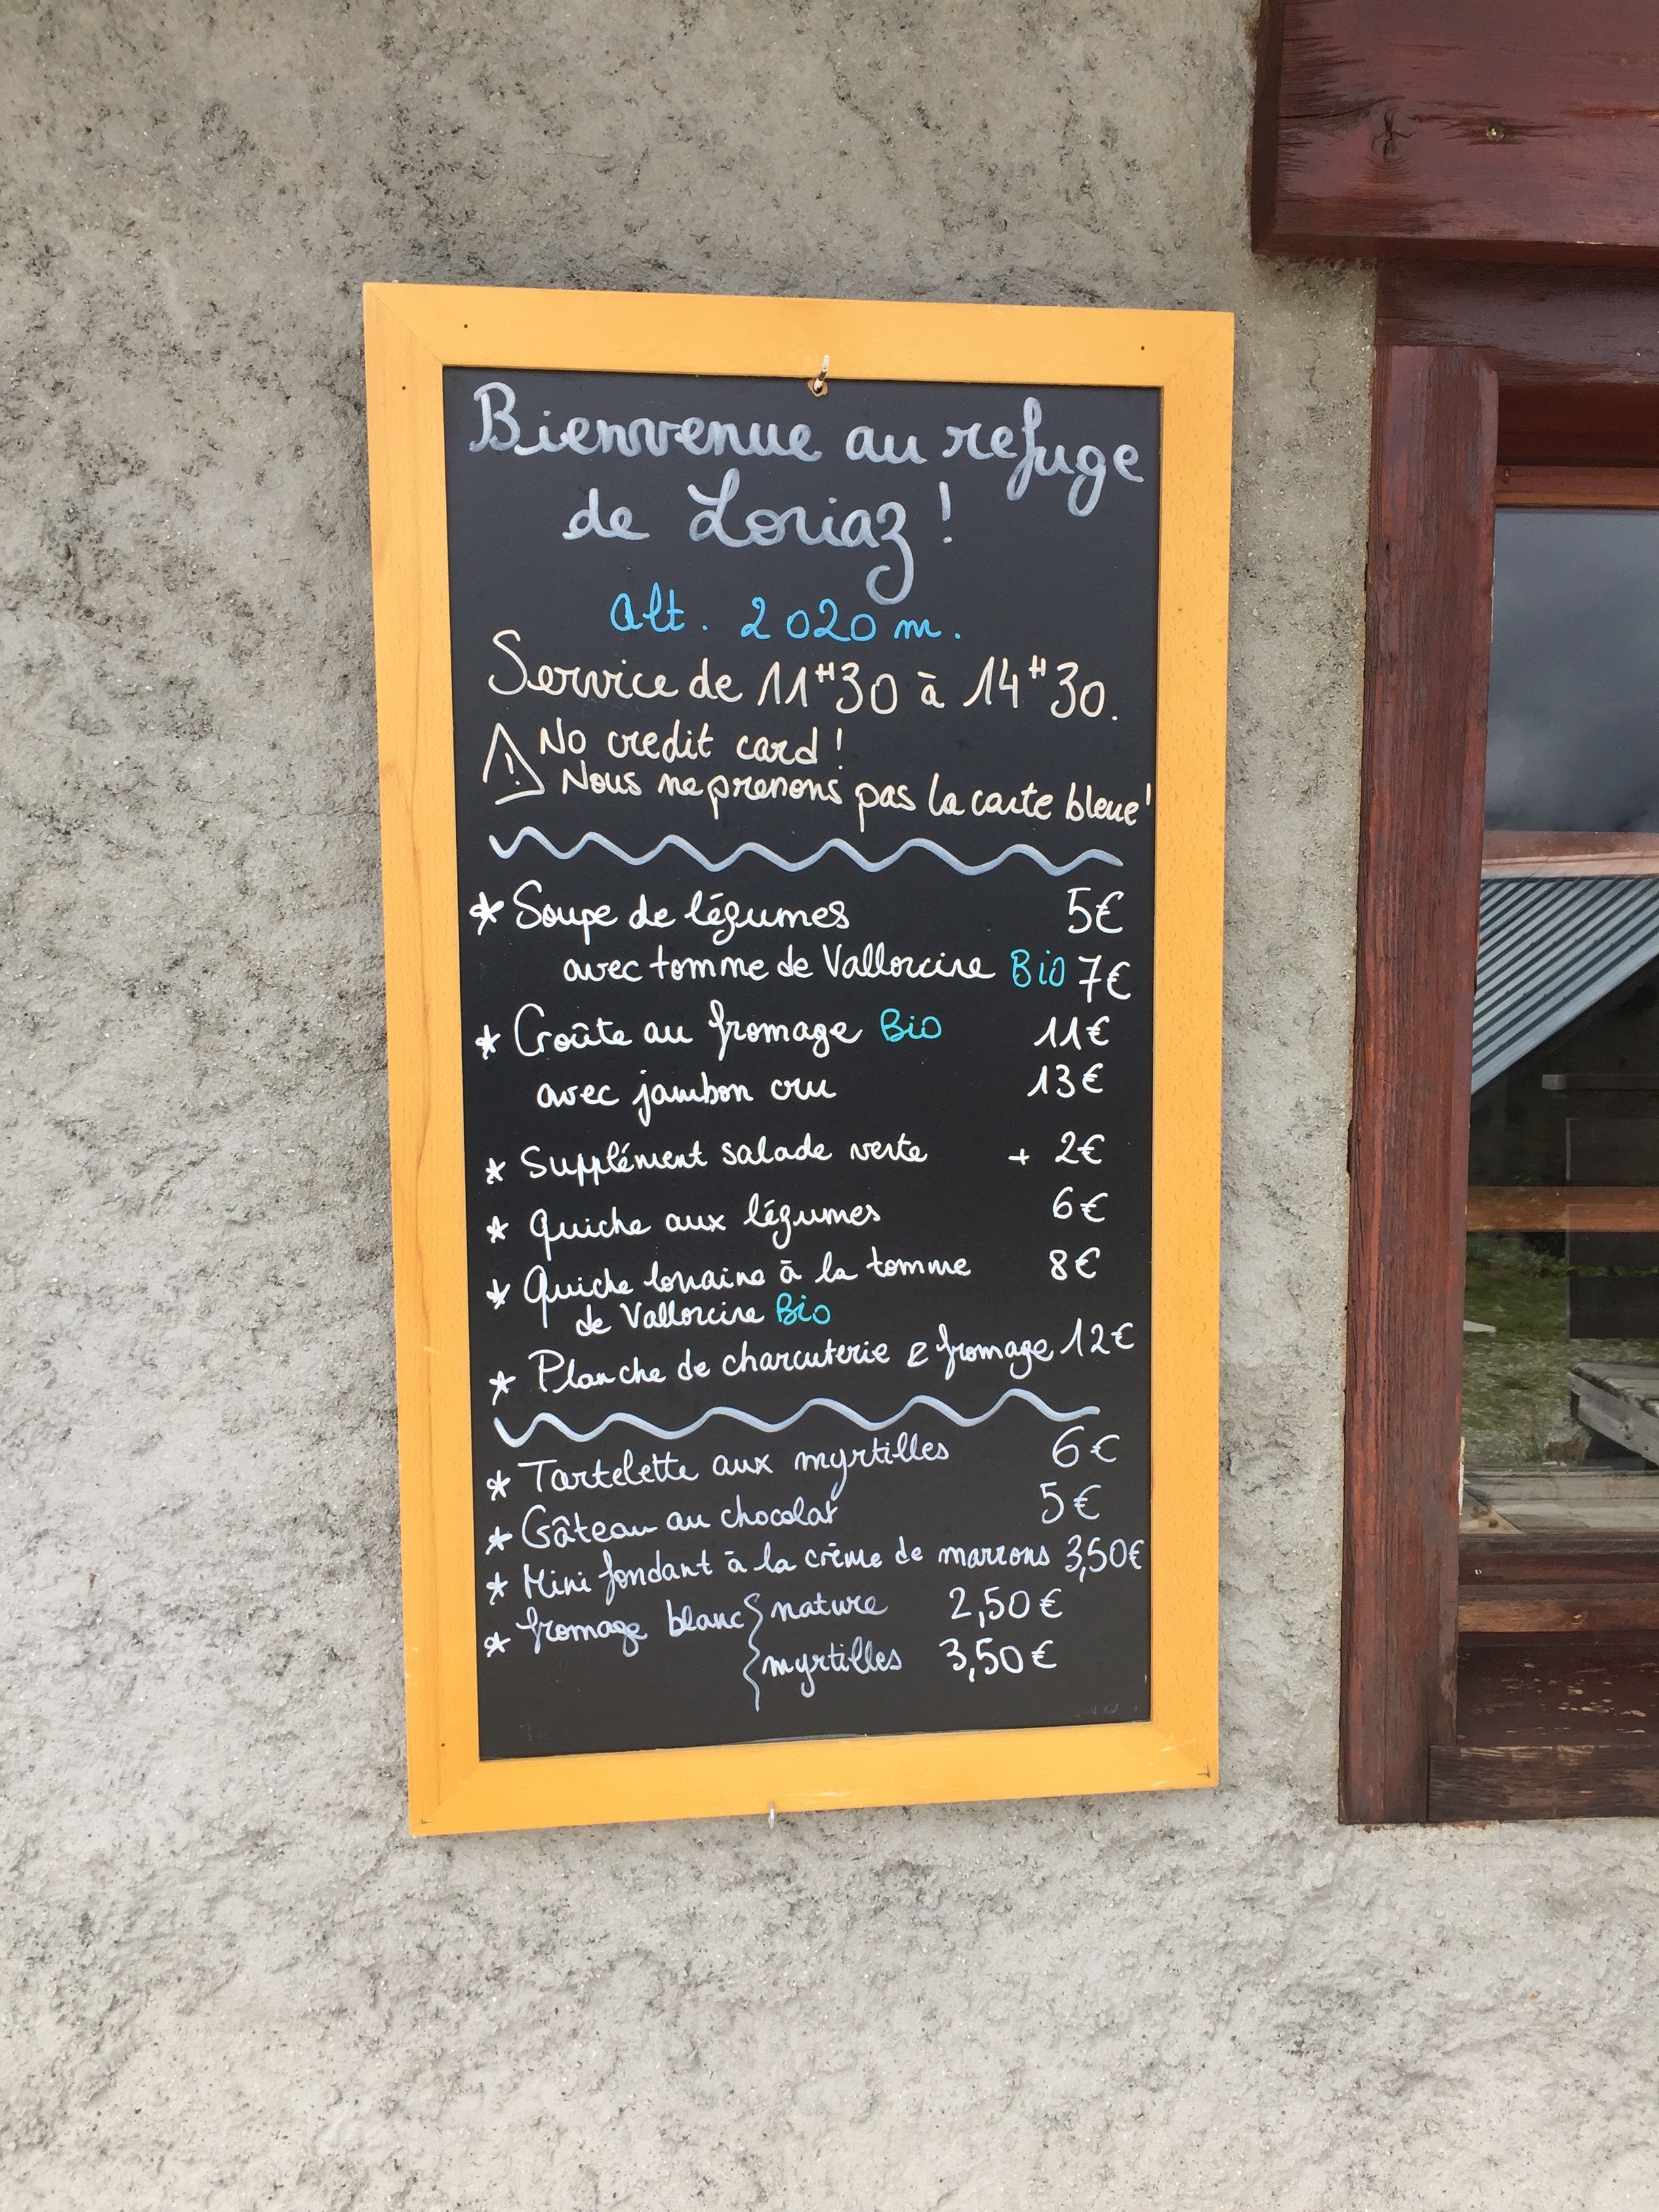 Bienvenue au refuge
de Loriaz !
Alt. 2020 m.
Service de 11H30 à 14H30.
No credit card !
Nous ne prenons pas la carte bleue !
* Soupe de légumes 5€
avec tomme de Vallorcine Bio 7€
* Croûte au fromage Bio 11€
avec jambon cru 13€
* Supplément salade verte + 2€
* Quiche aux légumes 6€
* Quiche lorraine à la tomme 8€
de Vallorcine Bio
* Planche de charcuterie & fromage 12€
* Tartelette aux myrtilles 6€
* Gâteau au chocolat 5€
* Mini fondant à la crème de marrons 3,50€
* fromage blanc { nature 2,50€
{ myrtilles 3,50€